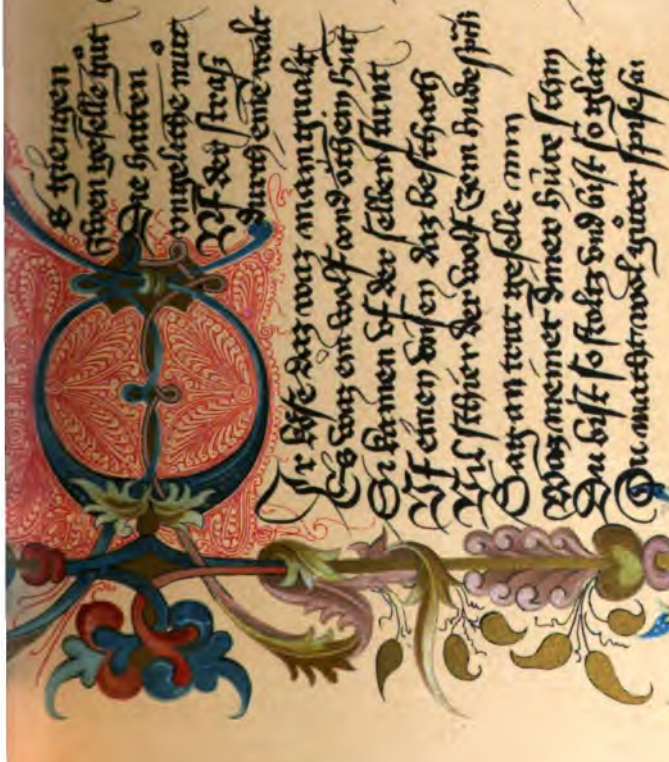 Es giengen
zwen geselle gůt
Die hatten
vngeliche můt
Vf der straß
durch eine walt
Ir kose daz waz manigualt
Es waz ein wolf vnd och ein hut
Si kamen vf der selben stunt
Vf einen wisen daz beschach
Vil schier der wolf zem hunde
Sag an trut geselle min
Waz meinet diner hute schin
Du bist so stoltz vnd bist so glat
Du macht wol guter spise